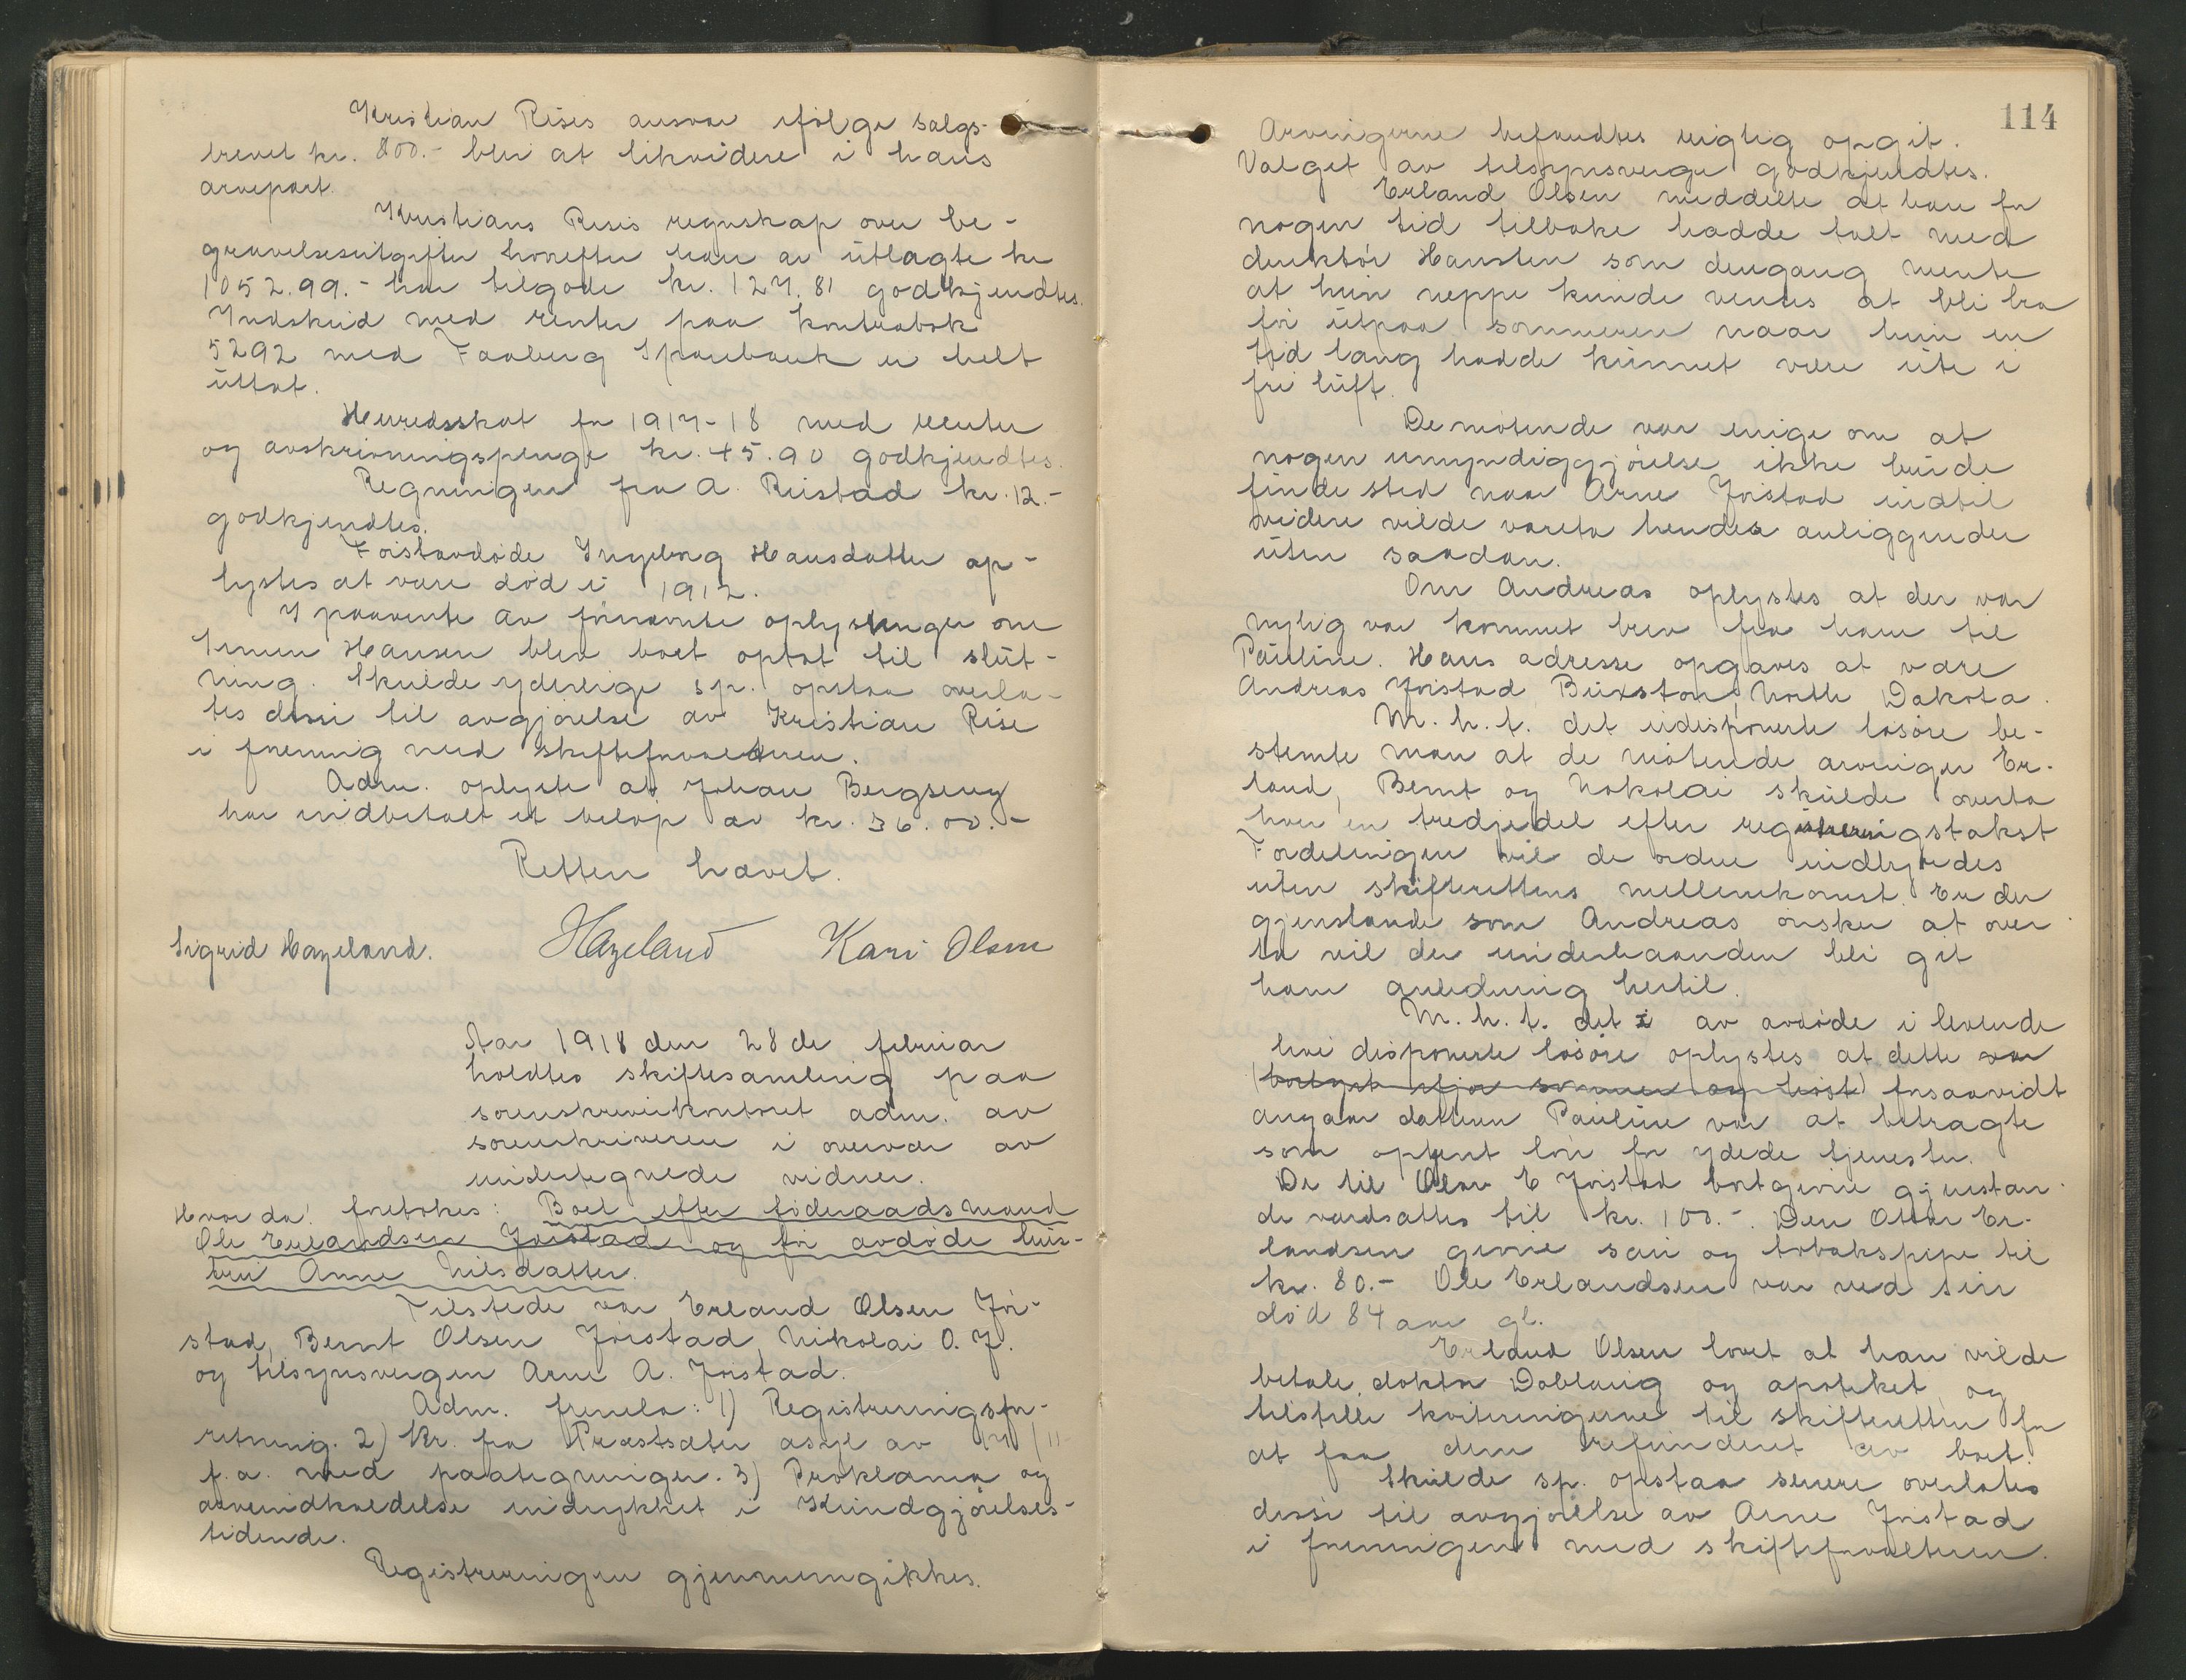 Kristian Rises ansvar ifølge salgs-
brevet kr. 800.- blir at likvidere i hans
arvepart.
Kristians Rises regnskap over be-
gravelsesutgifter hvorefter han av utlagte kr
1052.99.- har tilgode kr. 127.81 godkjendtes.
Indskud med renter paa kontrabok
5292 med Faaberg Sparebank er helt
uttat.
Herredsskat for 1917-18 med renter
og avskrivningspenge kr. 45.90 godkjendtes.
Regningen fra A. Rustad kr. 12.-
godkjendtes.
Førstavdøde Ingeborg Hansdatter op-
lystes at være død i 1912.
I paavente av fornævnte oplysninger om
Simen Hansen blev boet optat til slut-
ning. Skulde yderlige sp. opstaa overla-
tes disse til avgjørelse av Kristian Rise
i forening med skifteforvalteren.
Adm. oplyste at Johan Bergseng
har indbetalt et beløp av kr. 36.00.-
Retten hævet.
Sigrid Hazeland. Hazeland Kari Olsen
Aar 1918 den 28de februar
holdtes skiftesamling paa
sorenskriverkontoret adm. av
sorenskriveren i overvær av
undertegnede vidner.
Hvor da! foretokes: Boet efter føderaadsmand
Ole Erlandsen Jørstad og før avdøde hus-
tru Anne Nilsdatter.
Tilstede var Erland Olsen Jør-
stad, Bernt Olsen Jørstad, Nikolai O. J.
og tilsynsvergen Arne A. Jørstad.
Adm. fremla: 1) Registreringsfor-
retning. 2) Kr. fra Præstsæter asyl av 17/11
f.a. med paategninger. 3) Proklama og
arveindkaldelse indrykket i Kundgjørelses-
tidende.
Registreringen gjennemgikkes.
114
Arvingerne befandtes rigtig opgit.
Valget av tilsynsverge godkjendtes.
Erland Olsen meddelte at han for
nogen tid tilbake hadde talt med
direktør Hansten som dengang mente
at hun neppe kunde ventes at bli bra
før utpaa sommeren naar hun en
tid lang hadde kunnet være ute i
fri luft.
De møtende var enige om at
nogen umyndiggjørelse ikke burde
finde sted naar Arne Jørstad indtil
videre vilde vareta hendes anliggender
uten saadan.
Om Andreas oplystes at der var
nylig var kommet brev fra ham til
Pauline. Hans adresse opgaves at være
Andreas Jørstad Buxston, North Dakota.
M.h.t. det udisponerte løsøre be-
stemte man at de møtende arvinger Er-
land, Bernt og Nikolai skulde overta
hver en tredjedel efter registreringstakst
Fordelingen vil de ordne indbyrdes
uten skifterettens mellemkomst. Er der
gjenstande som Andreas ønsker at over
ta vil der underhaanden bli git
ham anledning hertil.
M.h.t. det i av avdøde i levende
live disponerte løsøre oplystes at dette var
(bortgit ifjor sommer og høst) forsaavidt
angaar datteren Pauline var at betragte
som optjent løn for ydede tjenester.
De til Olav E Jørstad bortgivne gjenstan-
de værdsattes til kr. 100.-. Den Ottar Er-
landsen givne sau og tobakspipe til
kr. 80.- Ole Erlandsen var ved sin
død 84 aar gl.
Erland Olsen lovet at han vilde
betale doktor Doblaug og apoteket, og
tilstille kvitteringerne til skifteretten for
at faa dem refunderet av boet.
Skulde sp. opstaa senere overlates
disse til avgjørelse av Arne Jørstad
i foreningen med skifteforvalteren.